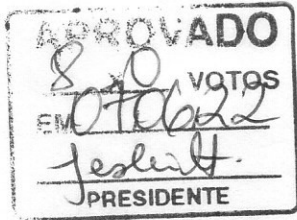 APROVADO
8 x 0 VOTOS
EM 070622
PRESIDENTE